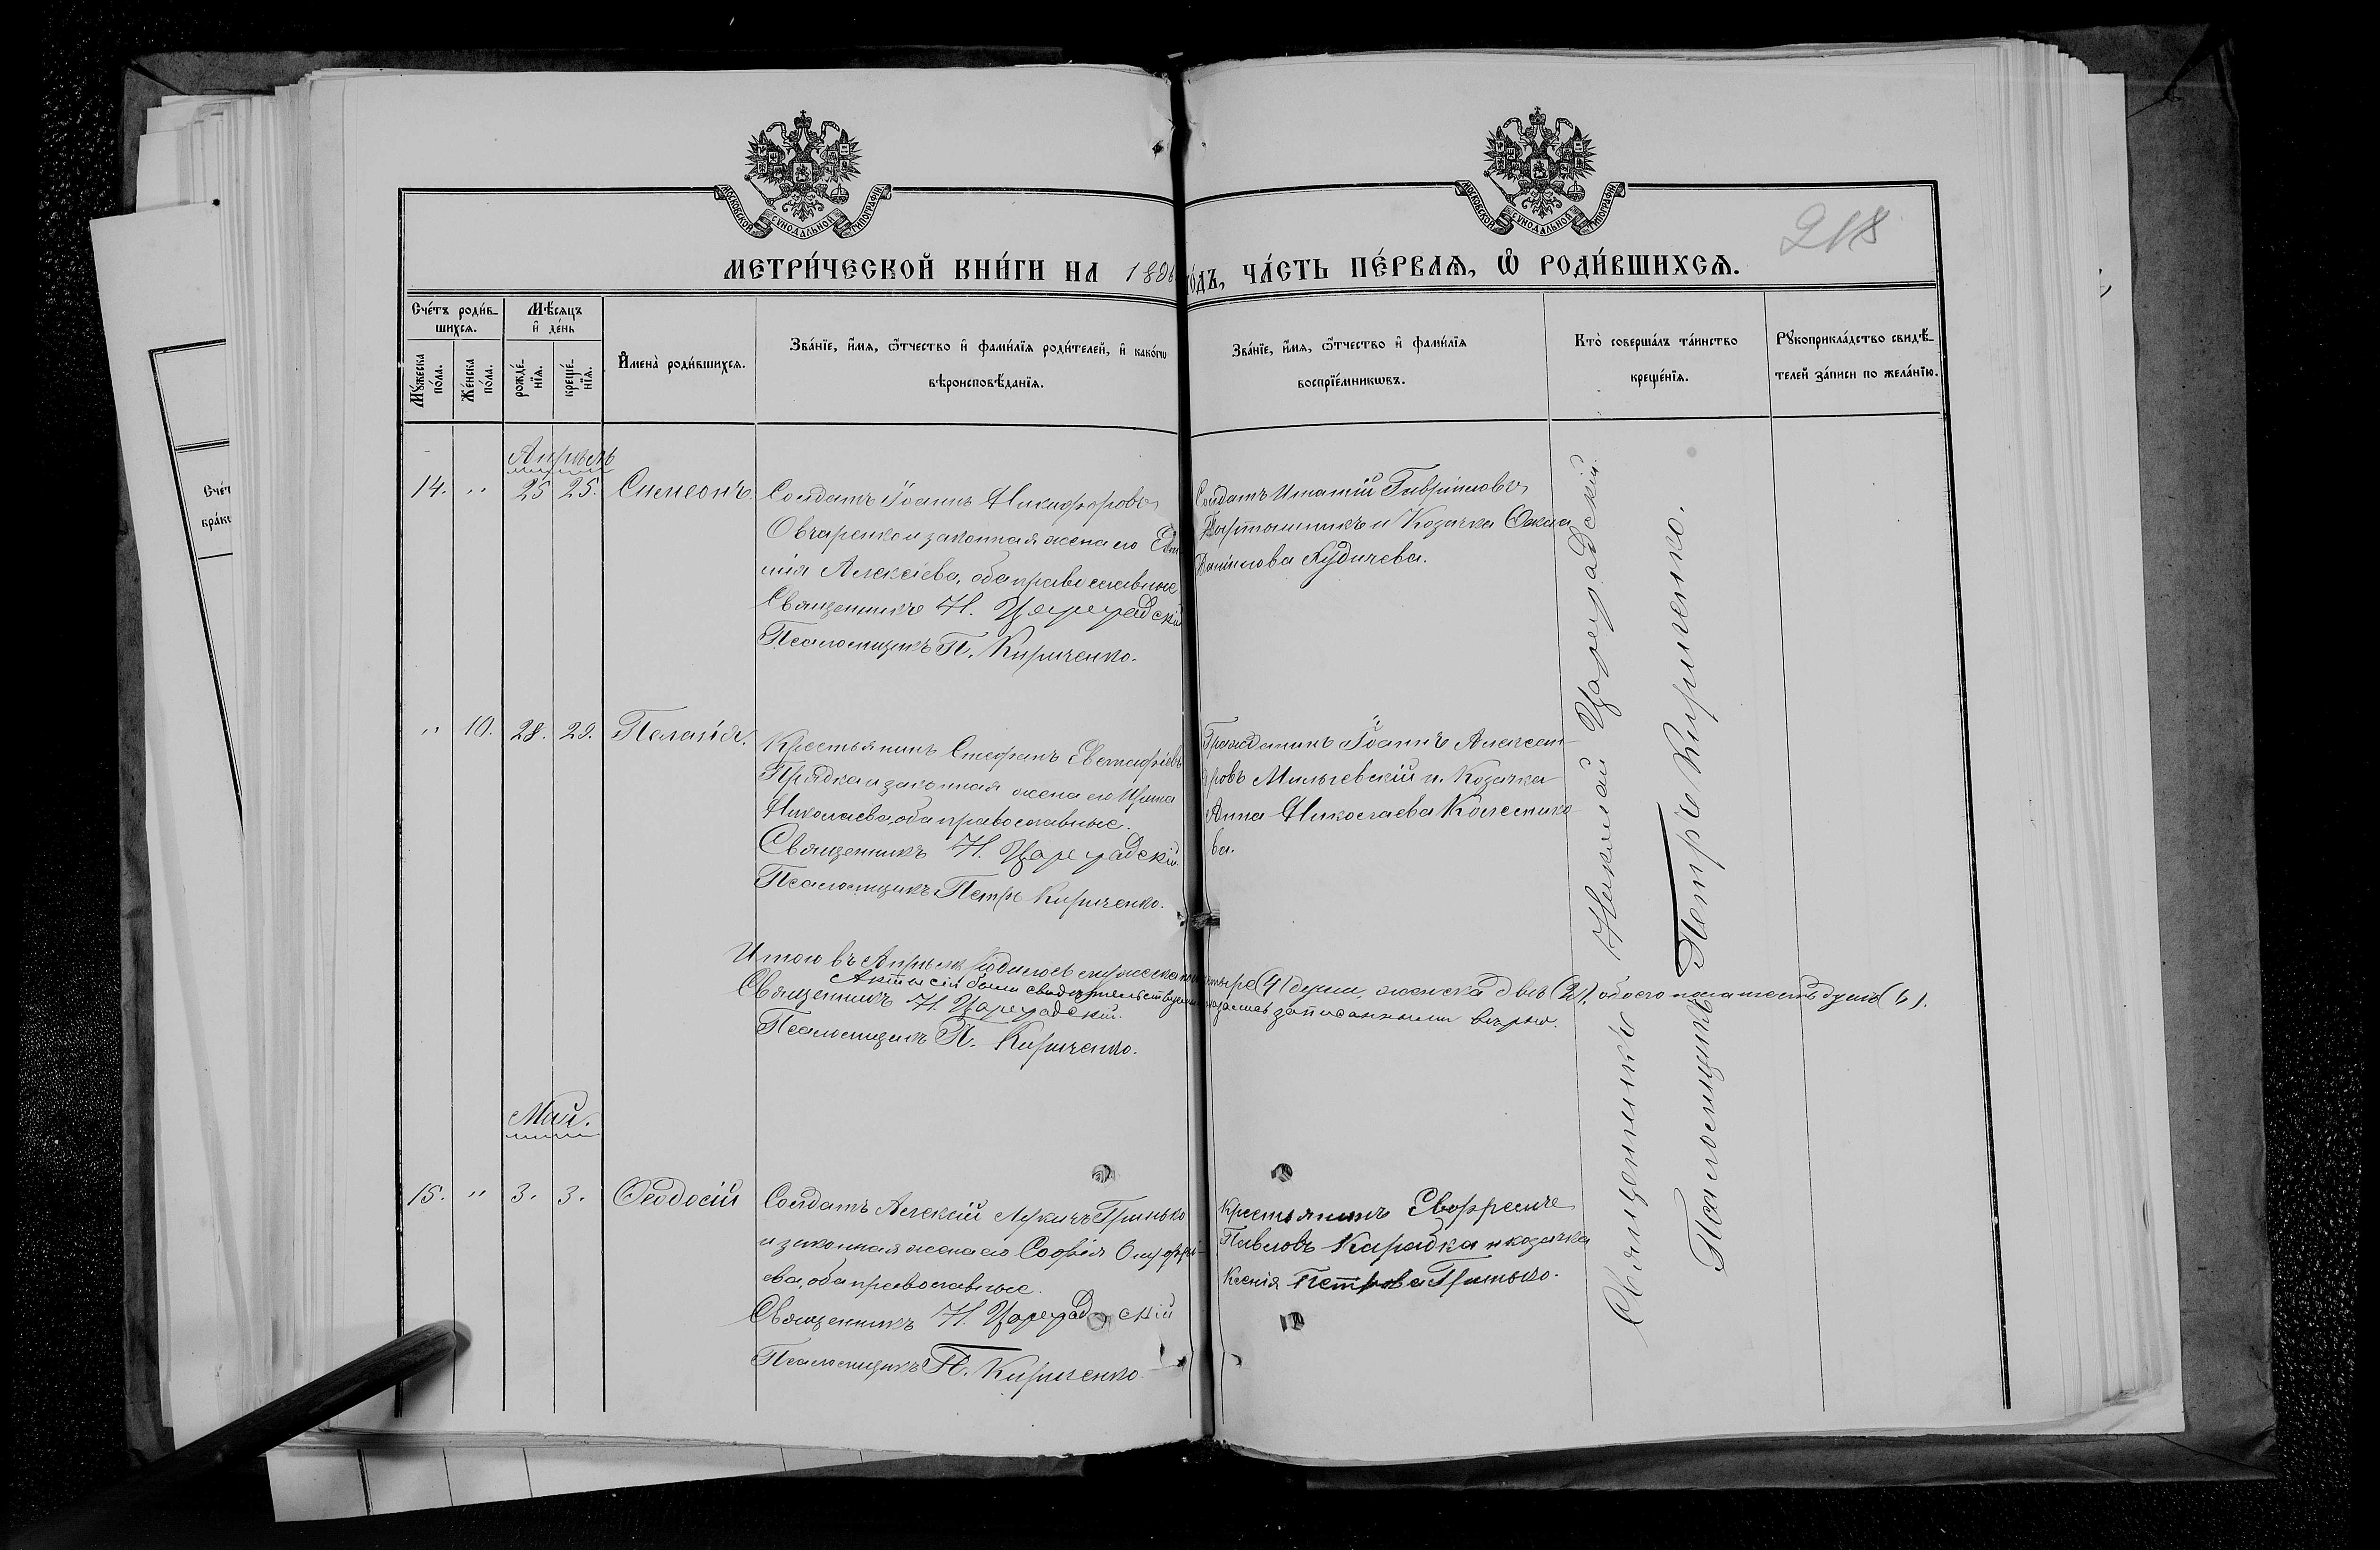 МОСКОВСКОЙ СѴНОДАЛЬНОЙ ТИПОГРАФІИ
МОСКОВСКОЙ СѴНОДАЛЬНОЙ ТИПОГРАФІИ
218
МЕТРИ́ЧЕСКОЙ КНИ́ГИ НА 1896 го́дъ, ЧА́СТЬ ПЕ́РВАѦ, Ѽ РОДИ́ВШИХСѦ.
Сче́тъ роди́в-
шихсѧ.
Мꙋжеска
по́ла.
Же́нска
по́ла.
Мѣ́сѧцъ
и҆ де́нь
рожде́-
нїѧ.
креще́-
нїѧ.
И҆мена̀ роди́вшихсѧ.
Зва́нїе, и҆́мѧ, ѻ҆́тчество и҆ фами́лїѧ роди́телей, и҆ како́гѡ
вѣроисповѣ́данїѧ.
Зва́нїе, и҆́мѧ, ѻ҆́тчество и҆ фами́лїѧ
воспрїе́мникѡвъ.
Кто̀ соверша́лъ та́инство
креще́нїѧ.
Рꙋкоприкла́дство свидѣ́-
телей за́писи по жела́нїю.
Сче́т
бра́ко
Апрѣль
14. " 25 25. Симеонъ.
Солдатъ Іоаннъ Никифоровъ
Овчаренко и законная жена его Евѳи
мія Алексіева, оба православные
Священникъ Н. Цареградскій
Псаломщикъ П. Кириченко.
Солдатъ Игнатій Гавріиловъ
и Козачка
Даніилова Кудичева.
" 10. 28. 29. Пелагія.
Крестьянинъ Стефанъ Евстафіевъ
Прядка и законная жена его Ирина
Николаева, оба православные.
Священникъ Н. Цареградскій.
Псаломщикъ Петръ Кириченко.
Гражданинъ Іоаннъ Алексан
дровъ Мильчевскій и Козачка
Анна Николаева Колеснико
ва.
Итого въ Апрѣлѣ родилось мужеска пола четыре (4) души, женска двѣ (2), обоего пола шесть душъ (6).
Акты сіи были свидѣтельствуемы и оказались записанными вѣрно.
Священникъ Н. Цареградскій.
Псаломщикъ П. Кириченко.
Май.
15. " 3. 3. Ѳеодосій
Солдатъ Алексій Лукичъ Гринько
и законная жена его Софія Онуфрі-
ева, оба православные.
Священникъ Н. Цареградскій
Псаломщикъ П. Кириченко.
Крестьянинъ
Павловъ Карабка и козачка
Ксенія Петрова Гринько.
Священникъ Николай Цареградскій.
Псаломщикъ Петръ Кириченко.